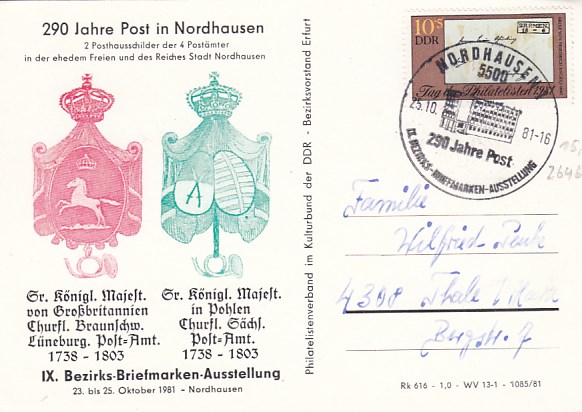 290 Jahre Post in Nordhausen
2 Posthausschilder der 4 Postämter
in der ehedem Freien und des Reiches Stadt Nordhausen
A
Sr. Königl. Majest.
von Großbritannien
Churfl. Braunschw.
Lüneburg. Post=Amt.
1738 - 1803
Sr. Königl. Majest.
in Pohlen
Churfl. Sächs.
Post=Amt.
1738 - 1803
IX. Bezirks-Briefmarken-Ausstellung
23. bis 25. Oktober 1981 - Nordhausen
Philatelistenverband im Kulturbund der DDR - Bezirksvorstand Erfurt
10+5
DDR
BREMEN
Tag des Philatelisten 1981
NORDHAUSEN 1
5500
25.10.
81-16
290 Jahre Post
IX. BEZIRKS-BRIEFMARKEN-AUSSTELLUNG
15,
2646
Familie
Wilfried
4308 Thale / Harz
Bergstr. 7
Rk 616 - 1,0 - WV 13-1 - 1085/81